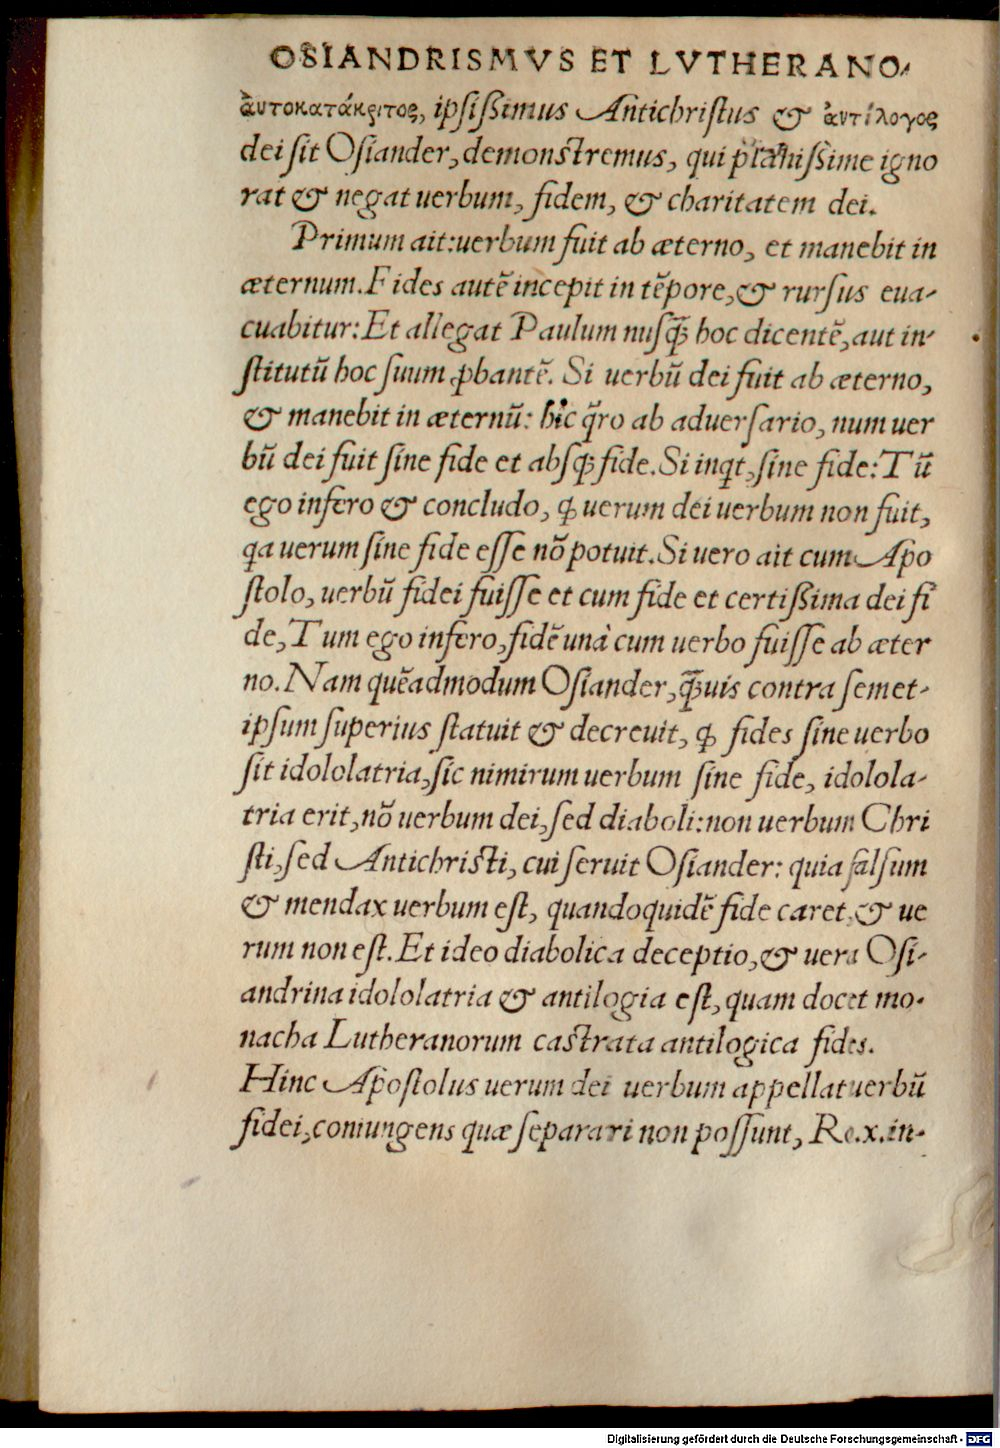 OSIANDRISMVS ET LVTHERANO-
ἀυτοκατάκριτος, ipſiſſimus Antichriſtus & ἀντίλογος
dei ſit Oſiander, demonſtremus, qui planiſſime igno
rat & negat uerbum, fidem, & charitatem dei.
Primum ait: uerbum fuit ab æterno, et manebit in
æternum. Fides autē incepit in tēpore, & rurſus eua-
cuabitur: Et allegat Paulum nuſq̃ hoc dicentē, aut in-
ſtitutū hoc ſuum ꝓbantē. Si uerbū dei fuit ab æterno,
& manebit in æternū: hic q̃ro ab aduerſario, num uer
bū dei fuit ſine fide et abſq; fide. Si inqt, ſine fide: Tū
ego infero & concludo, ꝙ uerum dei uerbum non fuit,
qa uerum ſine fide eſſe nō potuit. Si uero ait cum Apo
ſtolo, uerbū fidei fuiſſe et cum fide et certiſſima dei fi
de, Tum ego infero, fidē unà cum uerbo fuiſſe ab æter
no. Nam quēadmodum Oſiander, q̃uis contra ſemet-
ipſum ſuperius ſtatuit & decreuit, ꝙ fides ſine uerbo
ſit idololatria, ſic nimirum uerbum ſine fide, idolola-
tria erit, nō uerbum dei, ſed diaboli: non uerbum Chri
ſti, ſed Antichriſti, cui ſeruit Oſiander: quia falſum
& mendax uerbum eſt, quandoquidē fide caret, & ue
rum non eſt. Et ideo diabolica deceptio, & uera Oſi-
andrina idololatria & antilogia eſt, quam docet mo-
nacha Lutheranorum caſtrata antilogica fides.
Hinc Apoſtolus uerum dei uerbum appellat uerbū
fidei, coniungens quæ ſeparari non poſſunt, Ro.x.in-
Digitalisierung gefördert durch die Deutsche Forschungsgemeinschaft - DFG